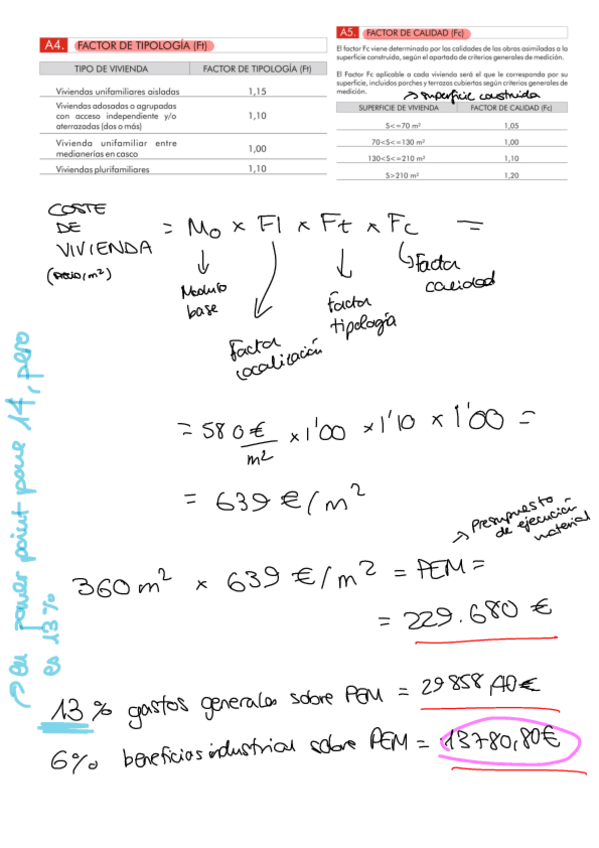 A4. FACTOR DE TIPOLOGÍA (Ft)
TIPO DE VIVIENDA FACTOR DE TIPOLOGÍA (Ft)
Viviendas unifamiliares aisladas 1,15
Viviendas adosadas o agrupadas
con acceso independiente y/o
aterrazadas (dos o más) 1,10
Vivienda unifamiliar entre
medianerías en casco 1,00
Viviendas plurifamiliares 1,10
A5. FACTOR DE CALIDAD (Fc)
El factor Fc viene determinado por las calidades de las obras asimiladas a la
superficie construida, según el apartado de criterios generales de medición.
El Factor Fc aplicable a cada vivienda será el que le corresponda por su
superficie, incluidos porches y terrazas cubiertas según criterios generales de
medición.
→ superficie construida
SUPERFICIE DE VIVIENDA FACTOR DE CALIDAD (Fc)
S<=70 m² 1,05
70<S<=130 m² 1,00
130<S<=210 m² 1,10
S>210 m² 1,20
COSTE
DE
VIVIENDA
(precio/m²)
= Mo x Fl x Ft x Fc =
Modulo
base
Factor
localización
Factor
tipología
Factor
calidad
= 580 € / m² x 1'00 x 1'10 x 1'00 =
= 639 € / m²
360 m² x 639 € / m² = PEM =
→ Presupuesto
de ejecución
material
= 229.680 €
13 % gastos generales sobre PEM = 29858,40 €
6% beneficios industrial sobre PEM = 13780,80 €
→ en power point pone 14, pero
es 13%